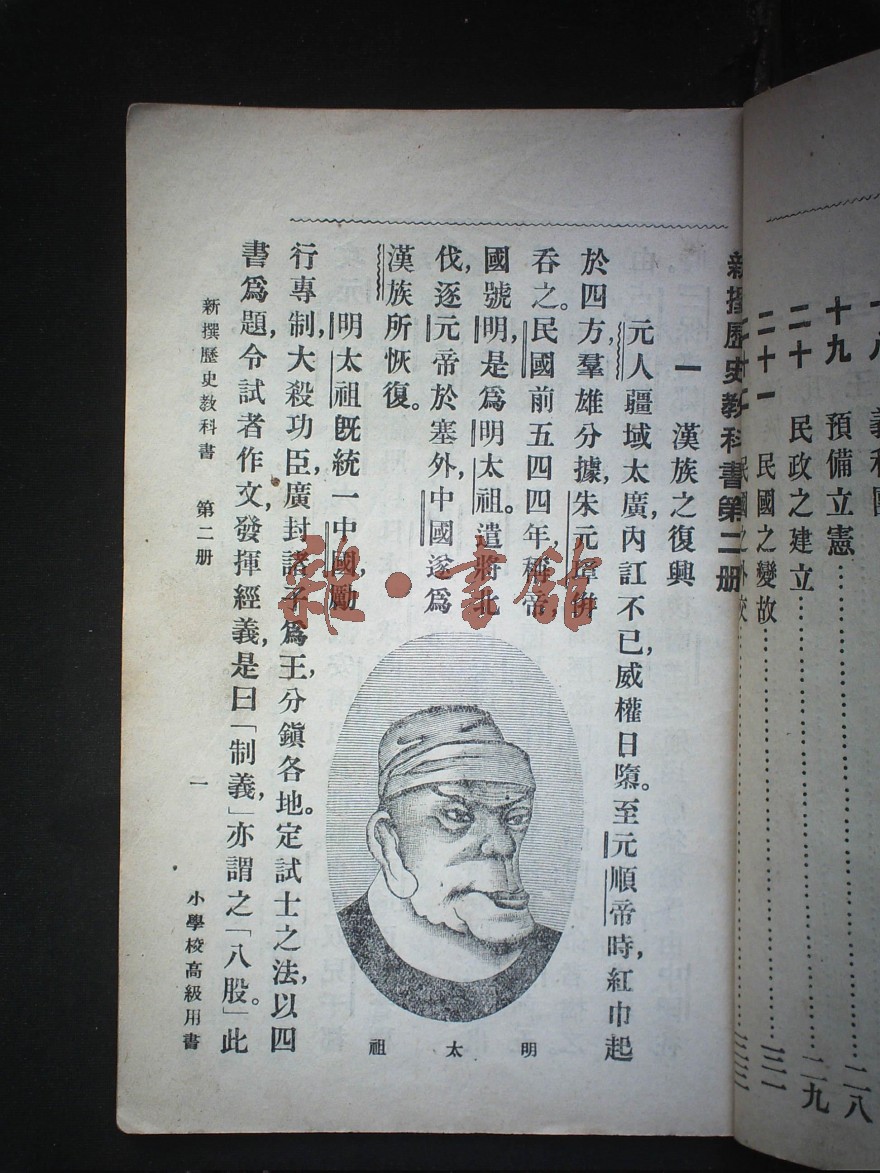 十九　預備立憲……
二十　民政之建立……二九
二十一　民國之變故……三一
新撰歷史教科書第二册
一　漢族之復興
元人疆域太廣，內訌不已，威權日隳。至元順帝時，紅巾起
於四方，羣雄分據，朱元璋併
吞之。民國前五四四年，稱帝，
國號明，是爲明太祖。遣將北
伐，逐元帝於塞外，中國遂爲
漢族所恢復。
明太祖
明太祖旣統一中國，勵
行專制，大殺功臣，廣封諸子爲王，分鎭各地。定試士之法，以四
書爲題，令試者作文，發揮經義，是曰「制義」，亦謂之「八股」。此
新撰歷史教科書　第二册　一　小學校高級用書
雜·書舘